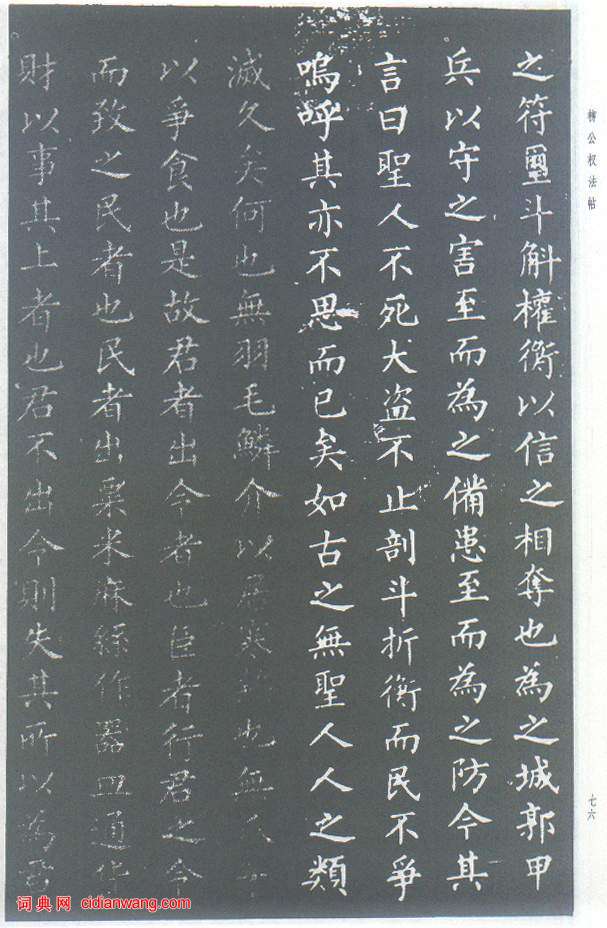 柳公权法帖
之符璽斗斛權衡以信之相奪也為之城郭甲
兵以守之害至而為之備患至而為之防今其
言曰聖人不死大盗不止剖斗折衡而民不爭
嗚呼其亦不思而已矣如古之無聖人人之類
滅久矣何也無羽毛鱗介以居寒也無
以爭食也是故君者出令者也臣者行君之令
而致之民者也民者出粟米麻絲作器皿通貨
財以事其上者也君不出令則失其所以為君
七六
词典网 cidianwang.com